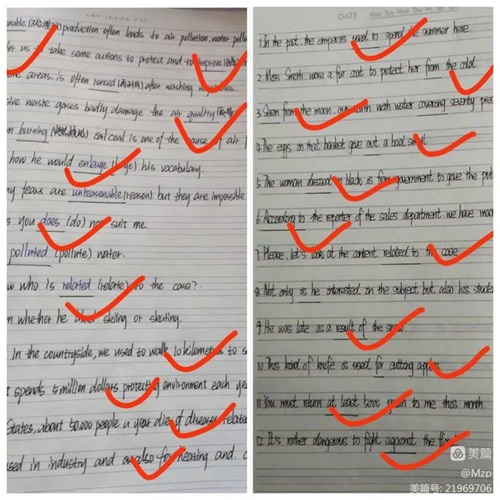 production often leads to air pollution, water
for us to take some actions to protect and to improve
areas is often after washing
waste gases badly damage the air quality
burning coal is one of the cause of air
how he would enlarge his vocabulary.
fears are unreasonable (reason) but they are impossible
you does (do) not suit me.
polluted (pollute) water.
who is related (relate) to the case?
whether he skiing or skating.
In the countryside, we used to walk 10 kilometres to
spends 5 million dollars protecting environment each
States, about 50,000 people a year die of diseases related
used in industry and also for heating and
DATE
1. In the past, the emperors used to spend the summer here.
2. Miss Smith wore a fur coat to protect her from the cold.
3. Seen from the moon, our with water covering seventy
4. The eggs in that basket give out a bad smell.
5. The woman dressed in black is from government to give the
6. According to the reporter of the sales department, we have
7. Please, let's look at the content related to the case.
8. Not only is he interested in the subject but also his
9. He was late as a result of the snow.
10. This kind of knife is used for cutting
11. You must return at least 5000 yuan to me this month.
12. It's rather dangerous to fight against the
美篇
@Mzp
美篇号: 21969706